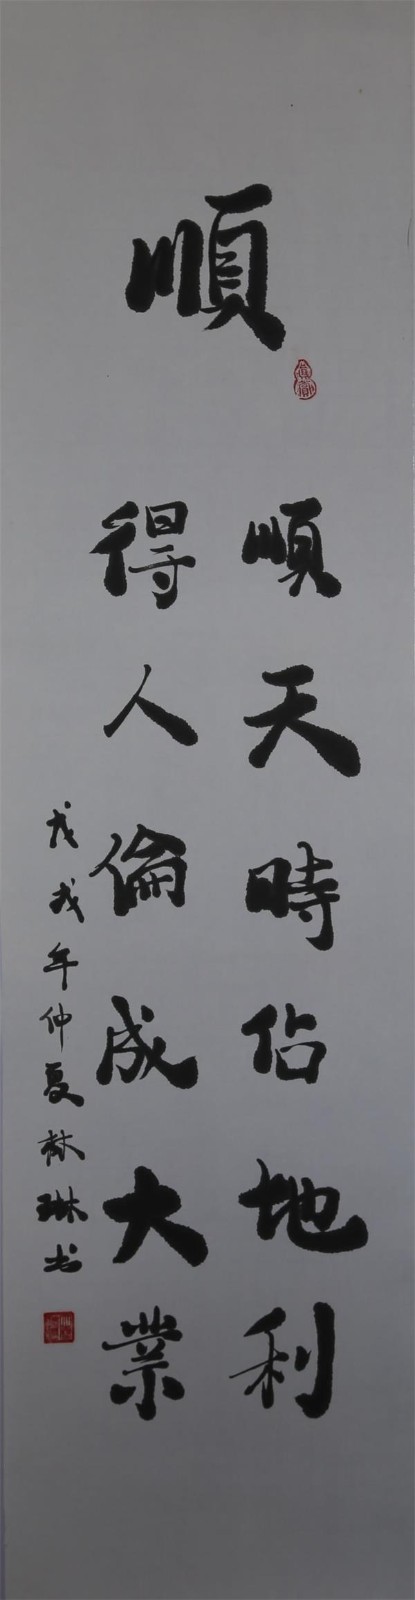 順
順天時佔地利
得人倫成大業
戊戌年仲夏林琳书